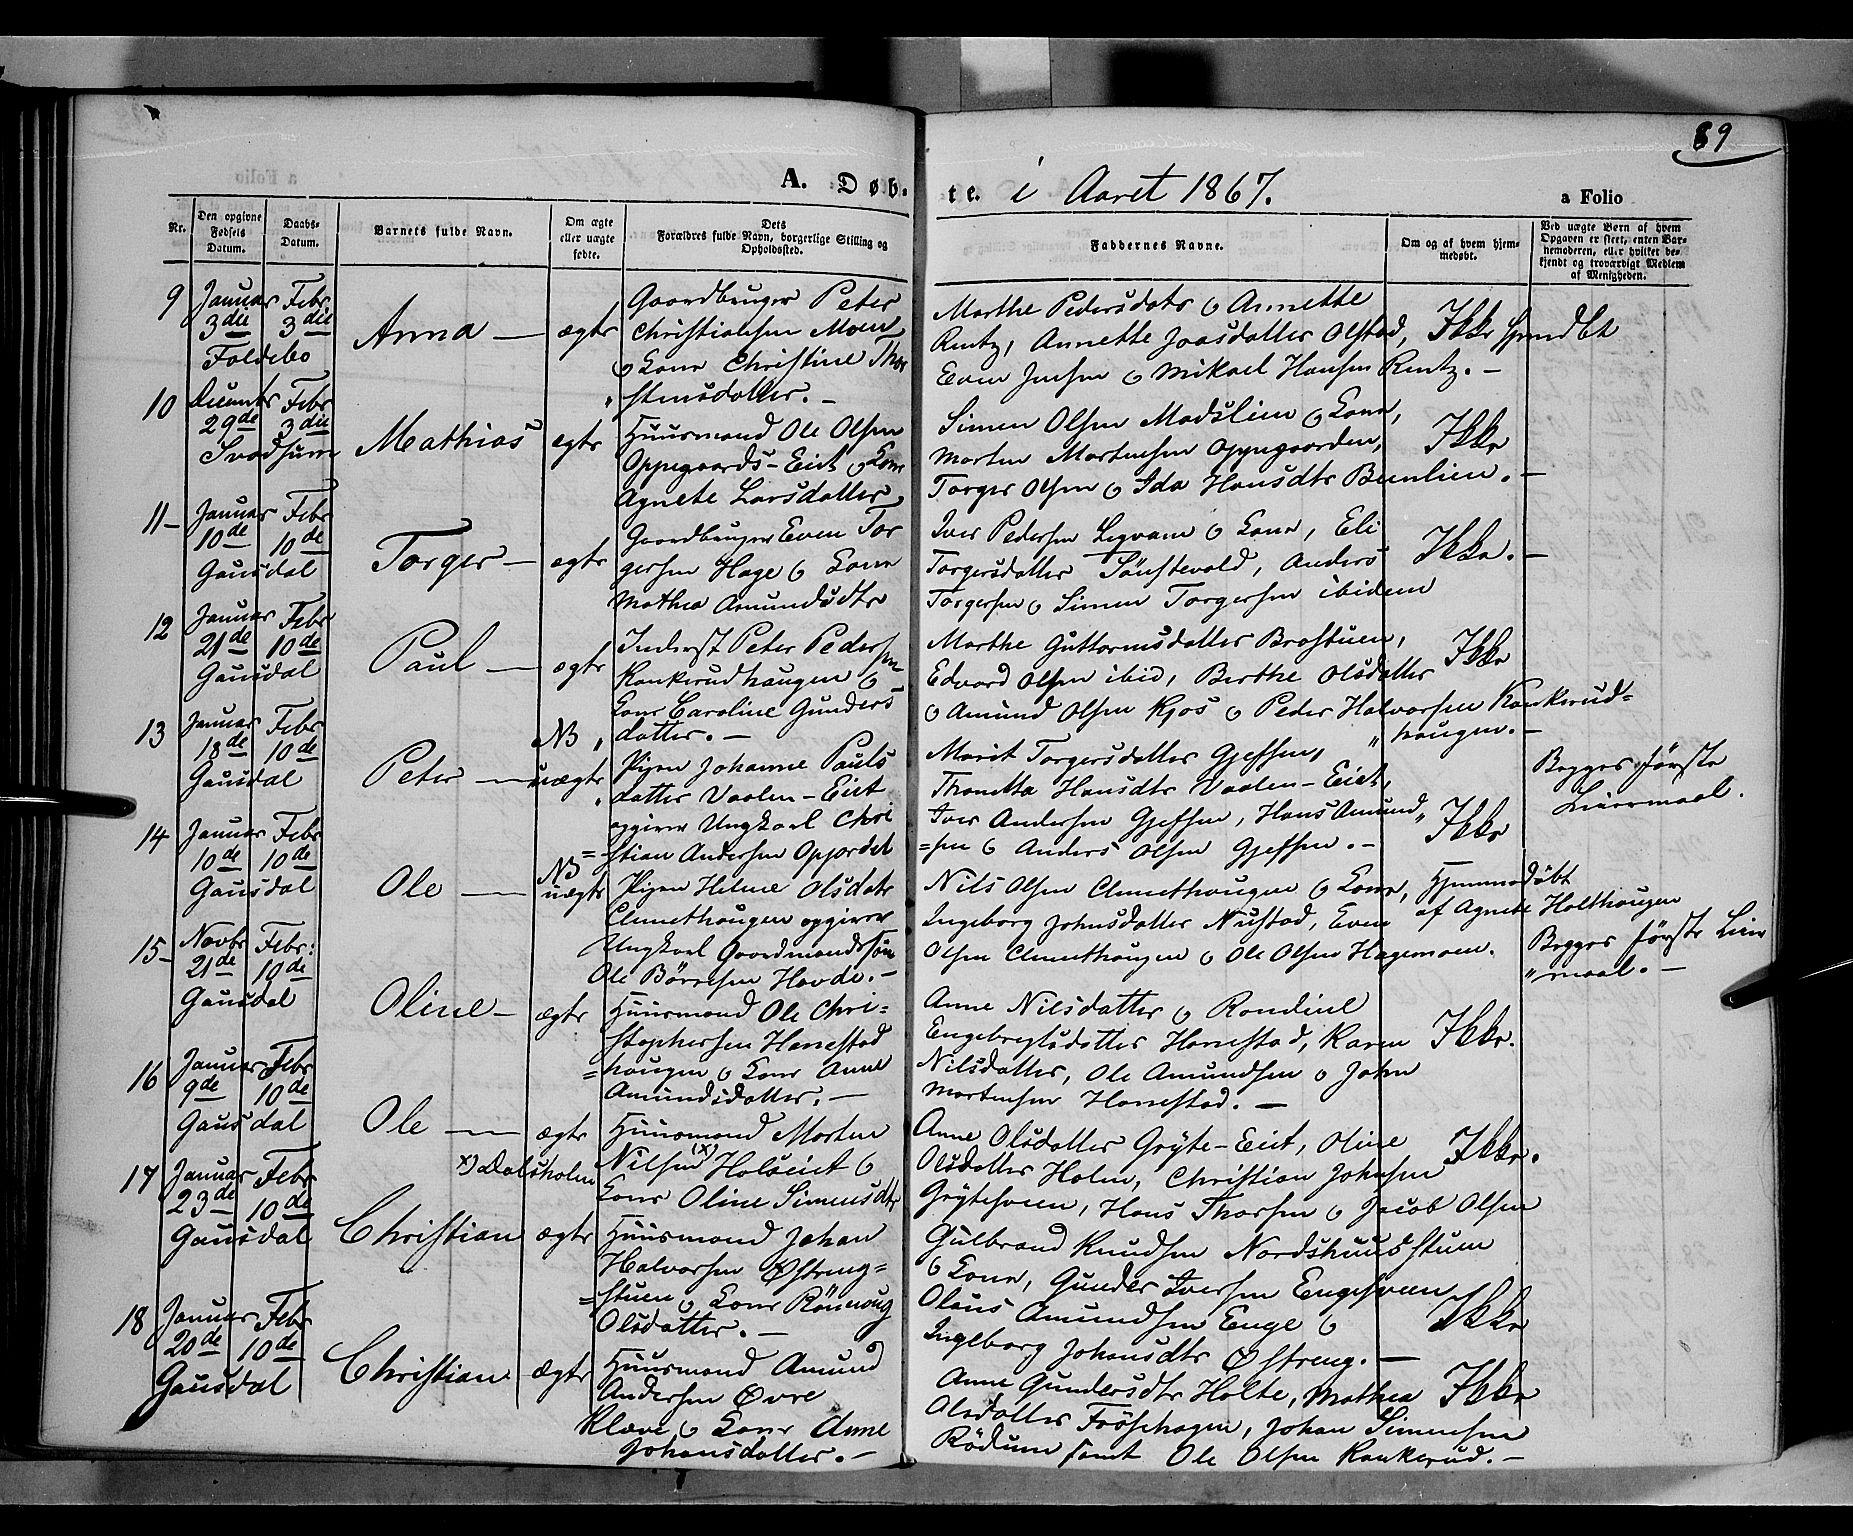 89
A. Døb-
te. i Aaret 1867.
a Folio
Nr.
Den opgivne Fødsels Datum.
Daabs-Datum.
Barnets fulde Navn.
Om ægte eller uægte fødte.
Dets Forældres fulde Navn, borgerlige Stilling og Opholdssted.
Faddernes Navne.
Om og af hvem hjemmedøbt.
Ved uægte Børn af hvem Opgaven er skeet, enten Barnemoderen, eller hvilket bekjendt og troværdigt Medlem af Menigheden.
9 Januar 3die Febr 3die
Foldebo
Anna — ægte
Gaardbruger Peter
Christiansen Moen
o Kone Christine Thor
stensdatter. —
Marthe Pedersdatr o Annette
Rentz, Annette Joasdatter Olstad,
Even Jensen o Mikael Hansen Rentz. —
Ikke
10 Decembr 29de Febr 3die
Svadsum
Mathias ægte
Huusmand Ole Olsen
Oppegaards-Eiet o Kone
Agnete Larsdatter
Simen Olsen Madslien o Kone,
Morten Mortensen Oppegaarden,
Torger Olsen o Ida Hansdtr Beenlien. —
Ikke
11 — Januar 10de Febr 10de
Gausdal
Torger — ægte
Gaardbruger Even Tor
gersen Hage o Kone
Mathea Amundsdtr
Iver Pedersen Legvam o Kone, Eli
Torgersdatter Sönstevold, Anders
Torgersen o Simen Torgersen ibidem
Ikke. —
12 Januar 21de Febr 10de
Gausdal
Paul — ægte
Inderst Peter Pedersen
Kankerudhaugen o
Kone Caroline Gunders
datter. —
Marthe Guttormsdatter Brostuen,
Edvard Olsen ibid, Berthe Olsdatter
o Amund Olsen Kjos o Peder Halvorsen Kankerud=
haugen. —
Ikke
13 Januar 18de Febr 10de
Gausdal
Peter — NB uægte
Pigen Johanne Pauls
datter Vaalen-Eiet
opgiver Ungkarl Chri
=stian Andersen Opjordet
Marit Torgersdatter Gjefsen,
Thonetta Hansdtr Vaalen-Eiet,
Iver Andersen Gjefsen, Hans Amund
=sen o Anders Olsen Gjefsen. —
Ikke
Begges første
Leiermaal.
14 Januar 10de Febr 10de
Gausdal
Ole — NB uægte
Pigen Helene Olsdatr
Clemethaugen opgiver
Ungkarl Gaardmandssøn
Ole Börresen Hovde. —
Nils Olsen Clemethaugen o Kone,
Ingeborg Johnsdatter Nustad, Even
Olsen Clemethaugen o Ole Olsen Hagemoen.
Hjemmedøbt
af Agnete Holthaugen
Begges første Leier
maal. —
15 — Novbr 21de Febr: 10de
Gausdal
Oline — ægte
Huusmand Ole Chri=
stophersen Hanestad
=haugen o Kone Anne
Amundsdatter. —
Anne Nilsdatter o Rondine
Engebregtsdatter Hanestad, Karen
Nilsdatter, Ole Amundsen o John
Mortensen Hanestad. —
Ikke.
16 Januar 9de Febr 10de
Gausdal
Ole — ægte
x) Dalsholen
Huusmand Morten
Nilsen (x) Holseiet o
Kone Oline Simensdtr
Anne Olsdatter Gryte-Eiet, Oline
Olsdatter Holen, Christian Johnsen
Grytesveen, Hans Thorsen o Jacob Olsen
Ikke.
17 Januar 23de Febr 10de
Gausdal
Christian ægte
Huusmand Johan
Halvorsen Østreng=
=stuen o Kone Rönnoug
Olsdatter. —
Gulbrand Knudsen Nordshuusstuen
o Kone, Gunder Iversen Engesveen
Olaus Amundsen Enge o
Ingeborg Johansdtr Østreng. —
Ikke
18 Januar 20de Febr 10de
Gausdal
Christian ægte
Huusmand Amund
Andersen Øvre
Kleve o Kone Anne
Johansdatter. —
Anne Gundersdtr Holte, Mathea
Olsdatter Frösehagen, Johan Simensen
Rödum samt Ole Olsen Kankerud. —
Ikke